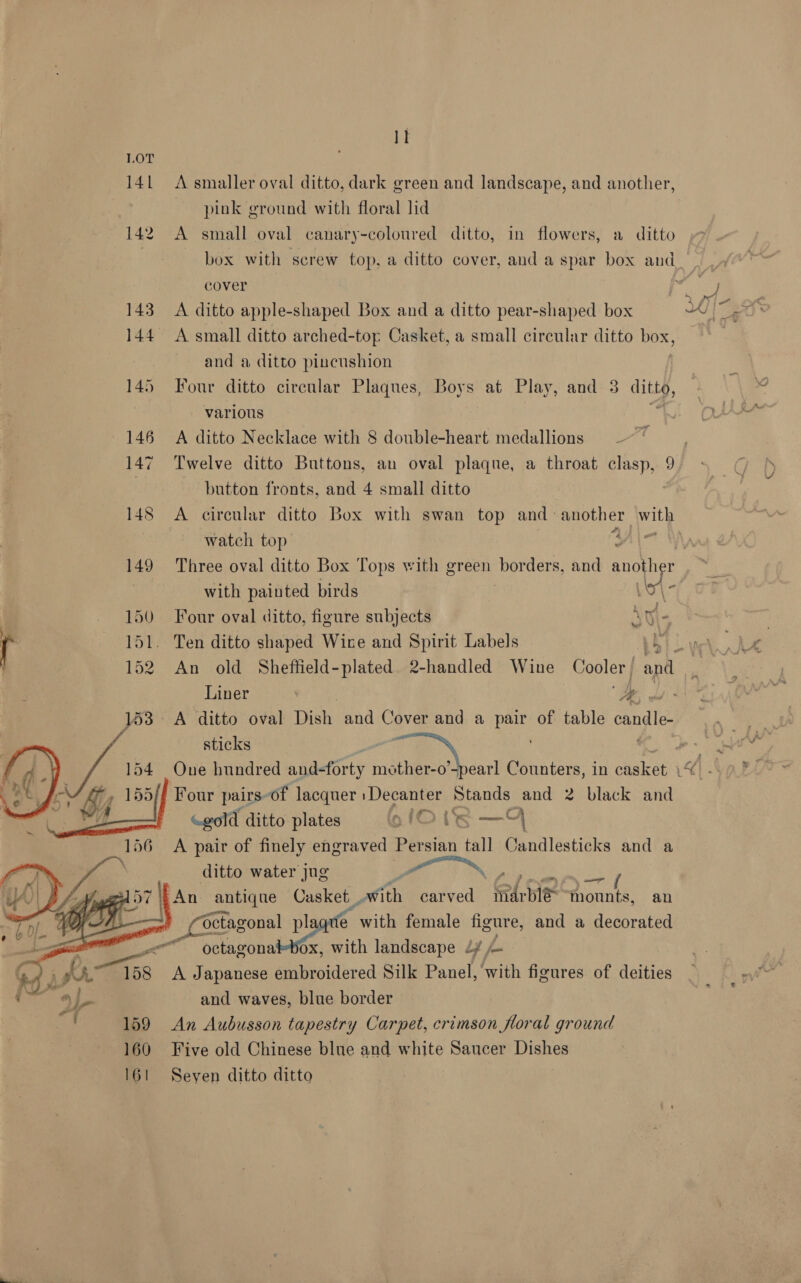 11
LOT
141 A smaller oval ditto, dark green and landscape, and another,
pink ground with floral lid
142 A small oval canary-coloured ditto, in flowers, a ditto
box with screw top, a ditto cover, and a spar box and
cover
143 A ditto apple-shaped Box and a ditto pear-shaped box
144 A small ditto arched-top Casket, a small circular ditto box,
and a ditto pincushion
145 Four ditto circular Plaques, Boys at Play, and 3 ditto,
various
146 A ditto Necklace with 8 double-heart medallions
147 Twelve ditto Buttons, an oval plaque, a throat clasp, 9
button fronts, and 4 small ditto
148 A circular ditto Box with swan top and another with
watch top
149 Three oval ditto Box Tops with green borders, and another
with painted birds
150 Four oval ditto, figure subjects
151. Ten ditto shaped Wine and Spirit Labels
152 An old Sheffield-plated 2-handled Wine Cooler and
Liner
153 A ditto oval Dish and Cover and a pair of table candle-
sticks
154 One hundred and-forty mother-o'-pearl Counters, in casket
155 Four pairs of lacquer Decanter Stands and 2 black and
gold ditto plates
156 A pair of finely engraved Persian tall Candlesticks and a
ditto water jug
157 An antique Casket with carved marble mounts, an
octagonal plaque with female figure, and a decorated
octagonal box, with landscape
158 A Japanese embroidered Silk Panel, with figures of deities
and waves, blue border
159 An Aubusson tapestry Carpet, crimson floral ground
160 Five old Chinese blue and white Saucer Dishes
161 Seven ditto ditto